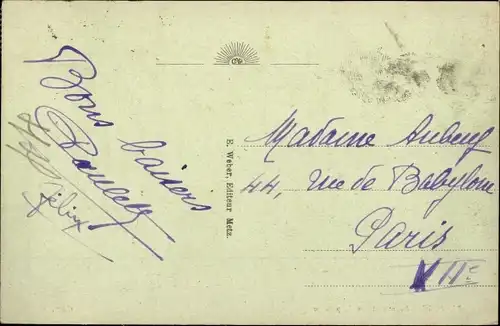 Bons baisers
Paulette
Félix
E. Weber, Editeur Metz.
Madame Aubecq
44, rue de Babylone
Paris
VIIe